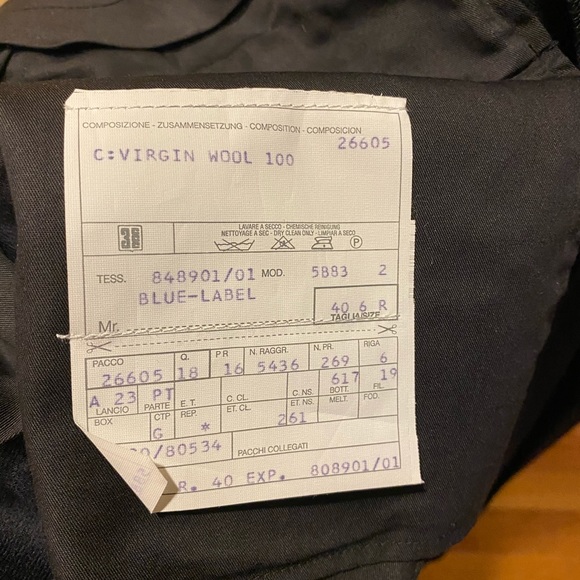 COMPOSIZIONE - ZUSAMMENSETZUNG - COMPOSITION - COMPOSICION
26605
C:VIRGIN WOOL 100
LAVARE A SECCO - CHEMISCHE REINIGUNG
NETTOYAGE A SEC - DRY CLEAN ONLY - LIMPIAR A SECO
P
TESS. 848901/01 MOD. 5B83 2
BLUE-LABEL
40 6 R
Mr. TAGLIA/SIZE
PACCO Q. PR N. RAGGR. N. PR. RIGA
26605 18 16 5436 269 6
A 23 PT 617 19
LANCIO PARTE E. T. C. CL. C. NS. BOTT. FIL.
BOX CTP REP. ET. CL. ET. NS. MELT. FOD.
G * 261
/80534 PACCHI COLLEGATI
R. 40 EXP. 808901/01